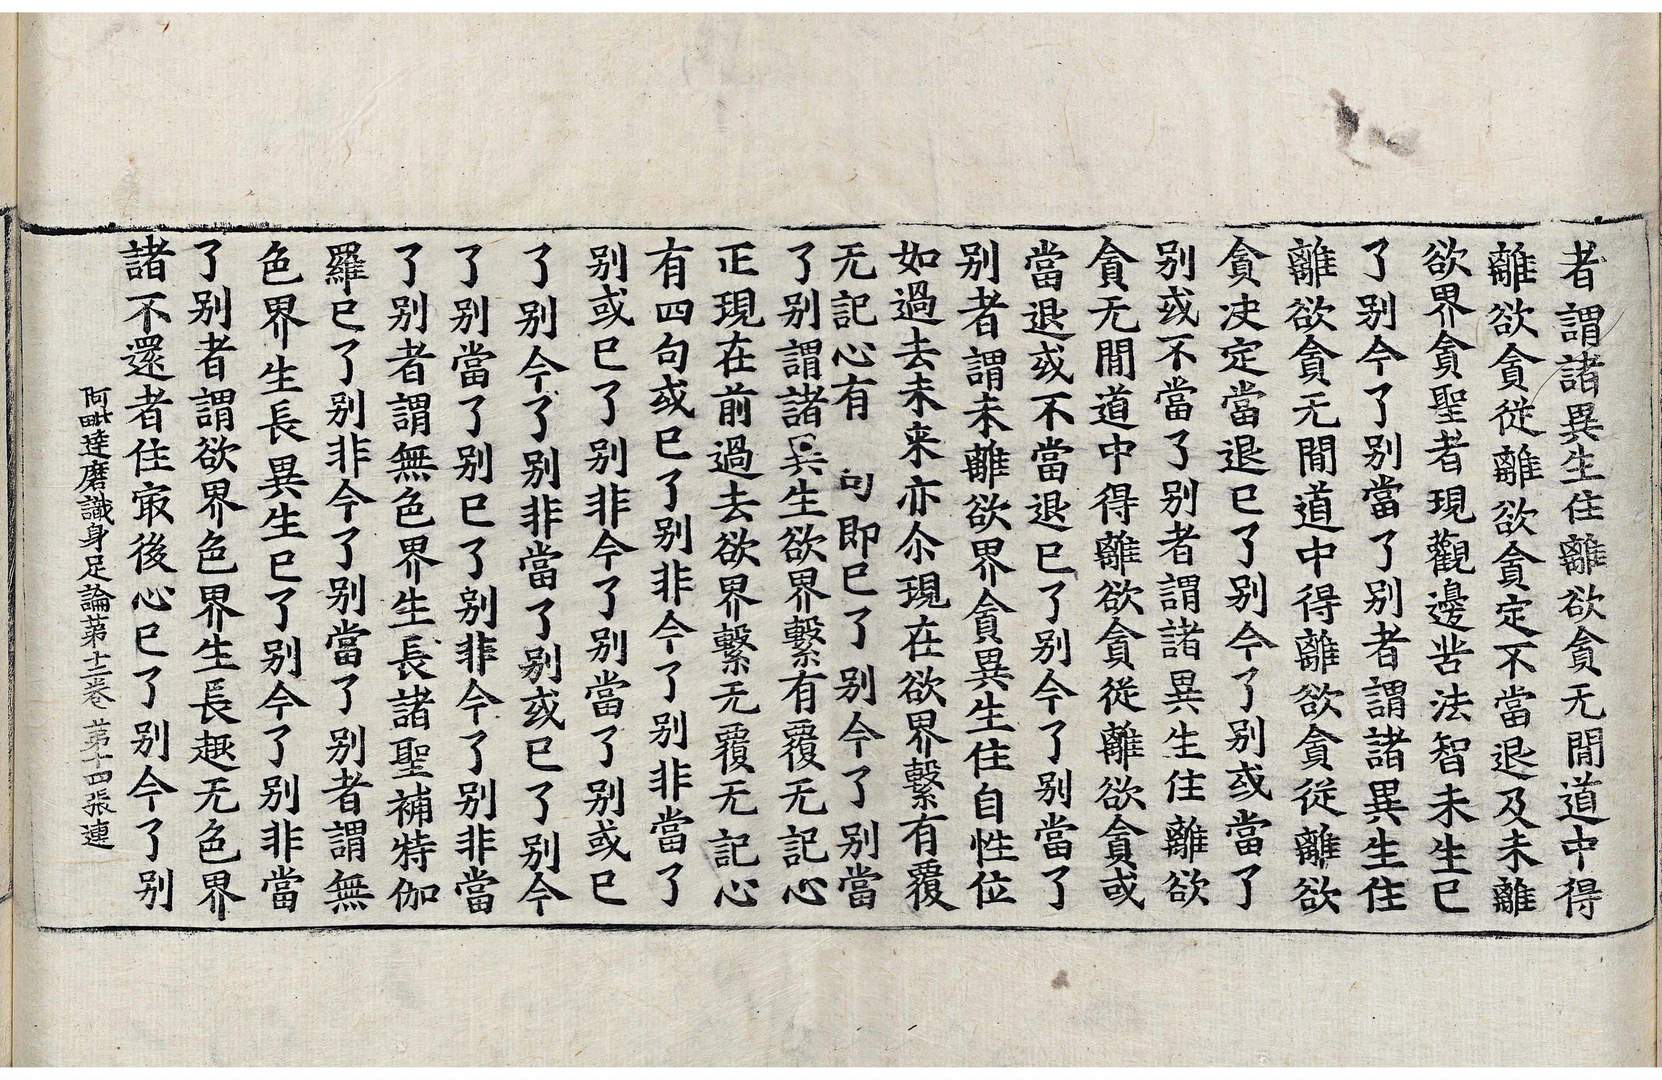 者謂諸異生住離欲貪无間道中得
離欲貪從離欲貪定不當退及未離
欲界貪聖者現觀邊苦法智未生已
了别今了别當了别者謂諸異生住
離欲貪无間道中得離欲貪從離欲
貪決定當退已了别今了别或當了
别或不當了别者謂諸異生住離欲
貪无間道中得離欲貪從離欲貪或
當退或不當退已了别今了别當了
别者謂未離欲界貪異生住自性位
如過去未来亦尒現在欲界繫有覆
无記心有句即已了别今了别當
了别謂諸異生欲界繫有覆无記心
正現在前過去欲界繫无覆无記心
有四句或已了别非今了别非當了
别或已了别非今了别當了别或已
了别今了别非當了别或已了别今
了别當了别已了别非今了别非當
了别者謂無色界生長諸聖補特伽
羅已了别非今了别當了别者謂無
色界生長異生已了别今了别非當
了别者謂欲界色界生長趣无色界
諸不還者住㝡後心已了别今了别
阿毗達磨識身足論苐十二卷 苐十四張 連